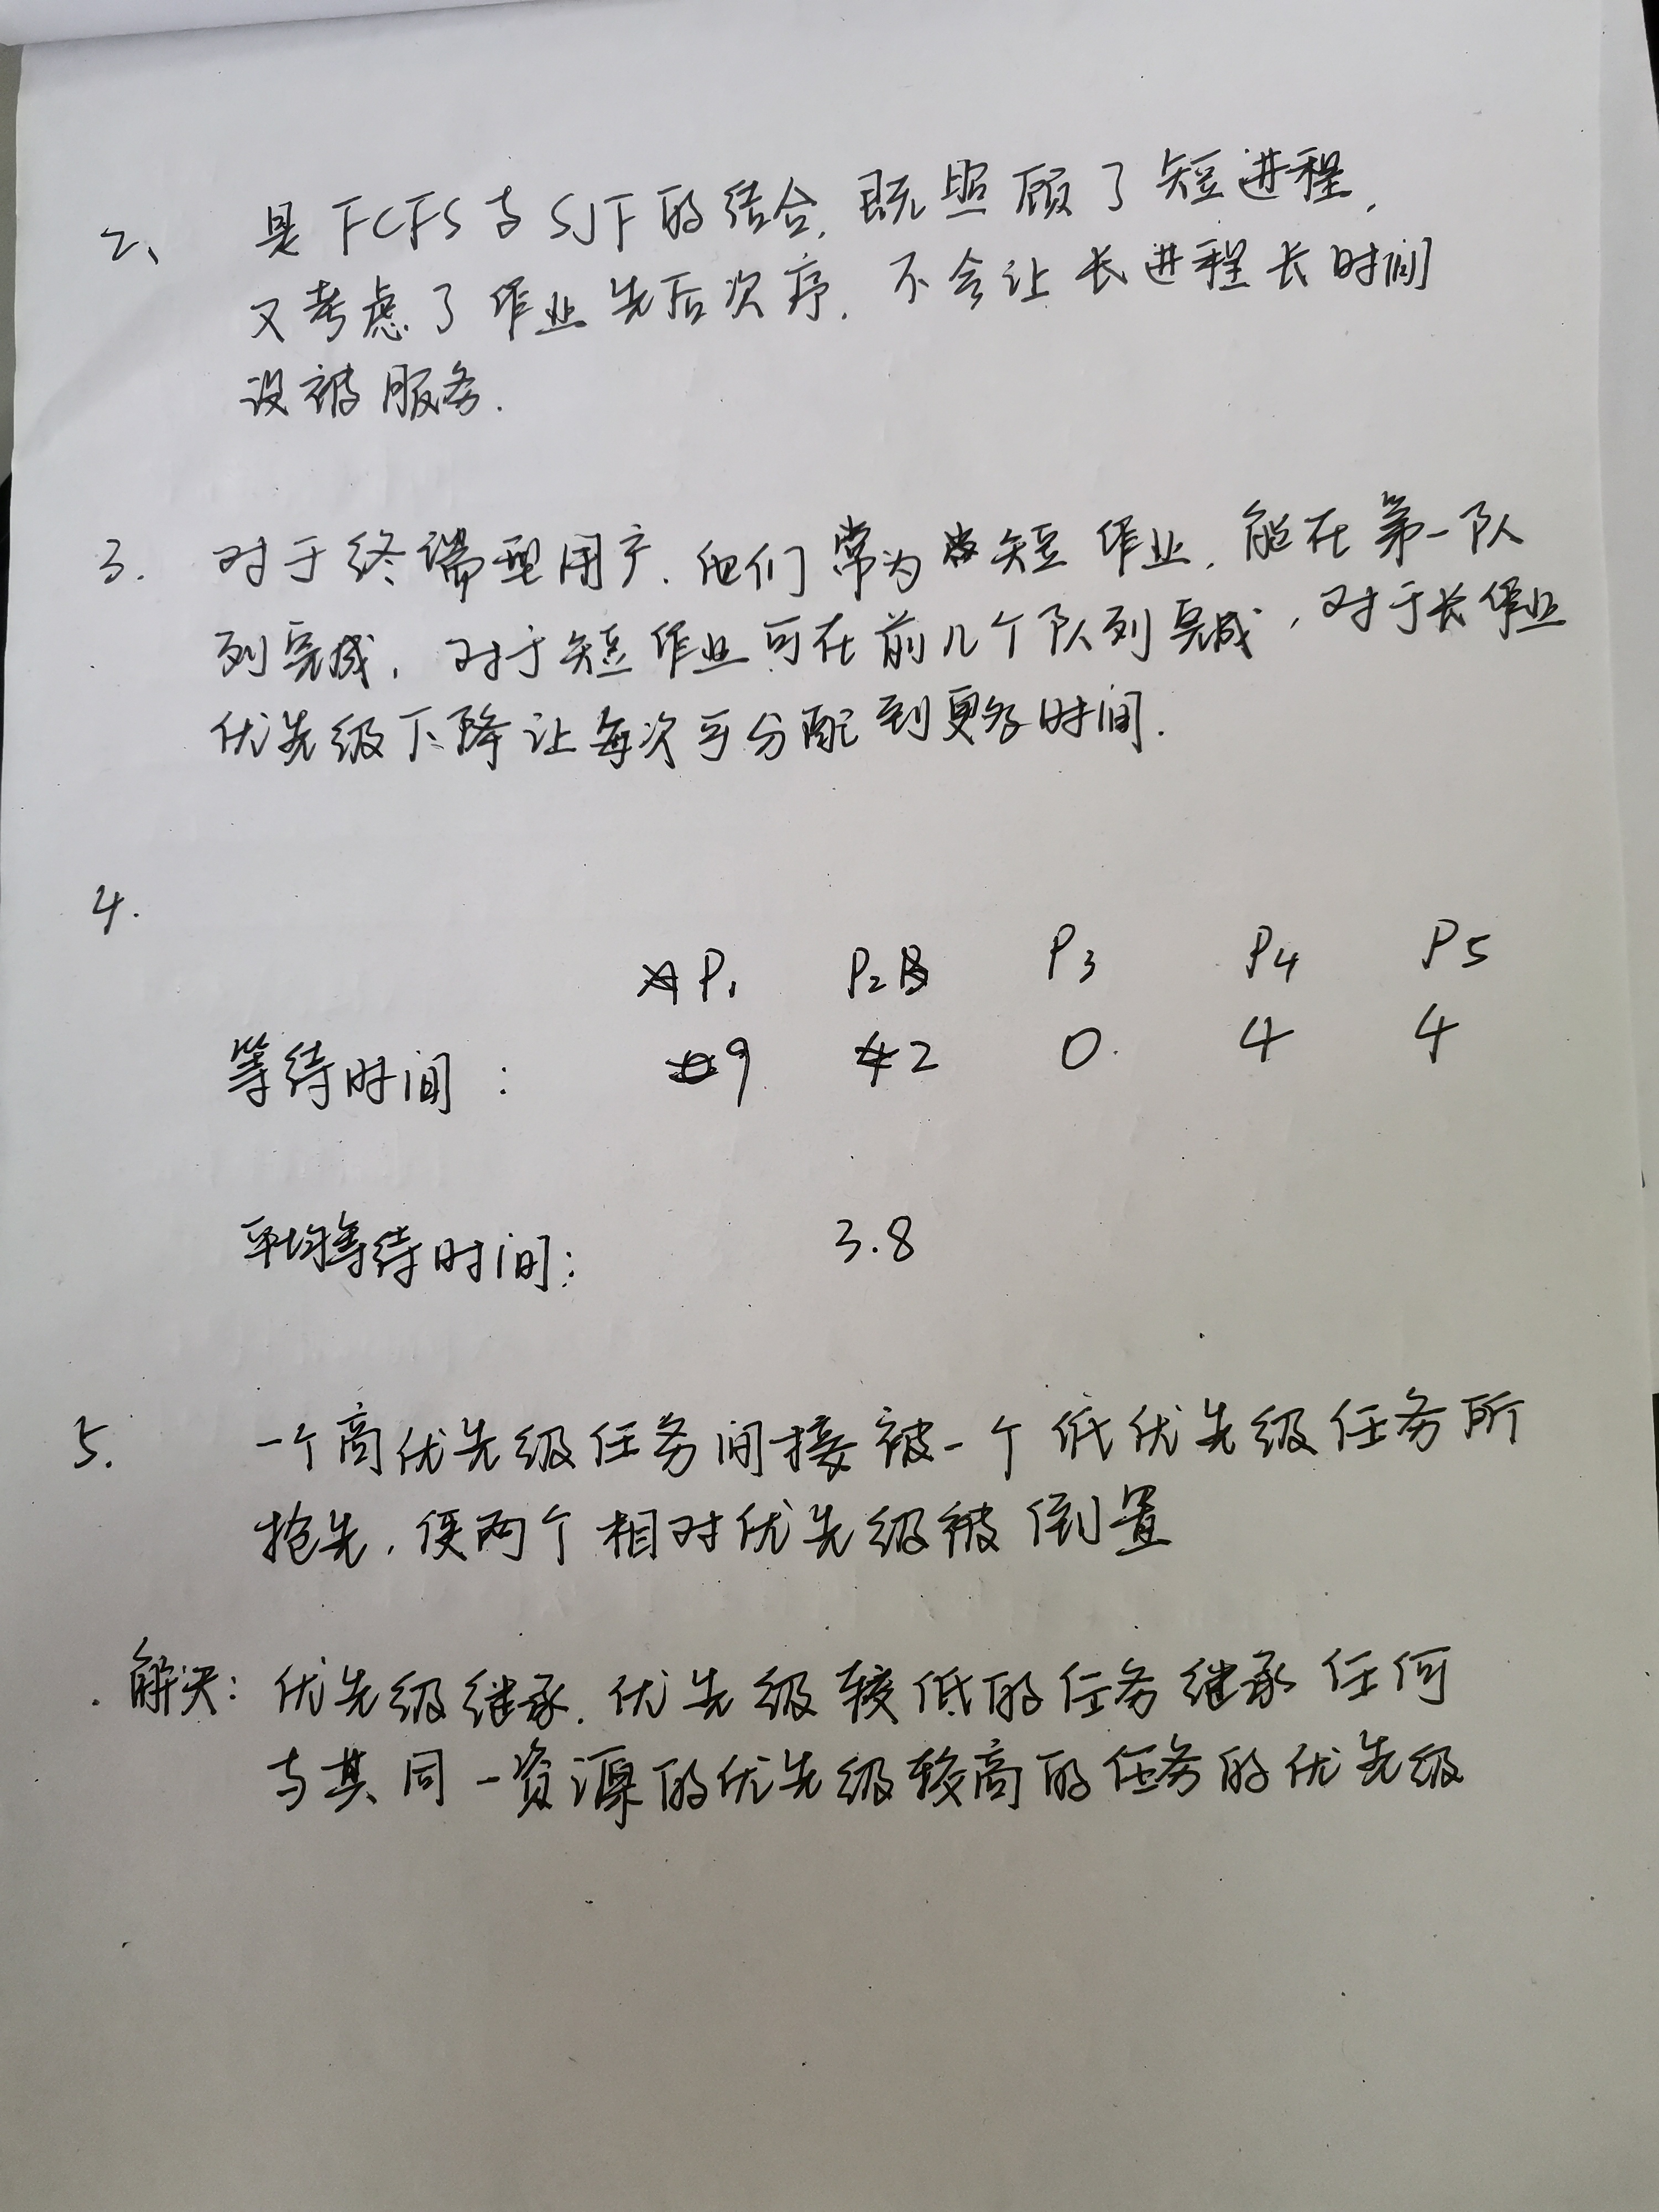 2、 是FCFS与SJF的结合,既照顾了短进程,
又考虑了作业先后次序.不会让长进程长时间
没被服务.
3. 对于终端型用户.他们常为短作业,能在第一队
列完成,对于短作业可在前几个队列完成,对于长作业
优先级下降让每次可分配到更多时间.
4.
P1 P2 P3 P4 P5
等待时间: 9 2 0 4 4
平均等待时间: 3.8
5. 一个高优先级任务间接被一个低优先级任务所
抢先,使两个相对优先级被倒置
解决:优先级继承.优先级较低的任务继承任何
与其同一资源的优先级较高的任务的优先级